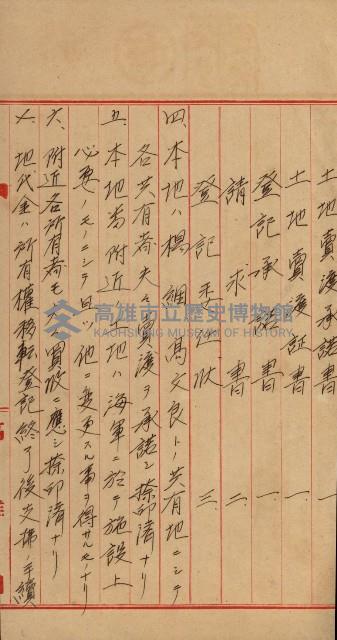 土地賣渡承諾書 一
土地賣渡証書 一
登記承諾書 一
請求書 二
登記委任狀 三
四、本地ハ楊 調 高文良トノ共有地ニシテ
各共有者夫々賣渡ヲ承諾シ捺印濟ナリ
五、本地番附近 地ハ海軍ニ於テ施設上
必要ノモノニシテ 他ニ変更スル事ヲ得サルモノナリ
六、附近各所有者モ 買收ニ應シ捺印濟ナリ
七、地代金ハ所有權移転登記終了後支拂ノ手續
高雄市立歷史博物館
KAOHSIUNG MUSEUM OF HISTORY
高雄